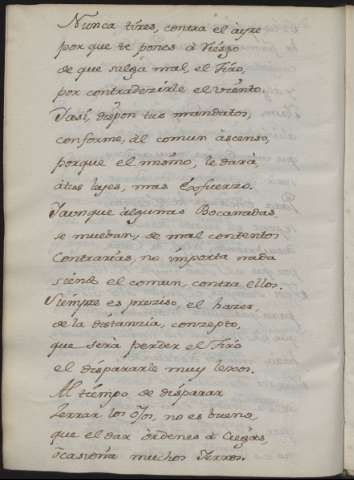 Nunca tires, contra el ayre
por que te pones à riesgo
de que salga mal, el Tiro,
por contradezirle el viento.
Yasi, dispon tus mandatos,
conforme, al comun àscenso,
porque el mismo, te darà,
à tus leyes, mas Esfuerzo.
Yaunque àlgunas Bocanadas,
se muevan, de mal contentos
Contrarias, no importa nada
siendo el comun, contra ellos.
Siempre es preciso, el hazer,
de la distancia, conzepto,
que serà perder el Tiro
el dispararle muy lexos.
Al tiempo de disparar
zerrar los ojos, no es bueno,
que el dar òrdenes à Ciegas,
òcasiona muchos Yerros.